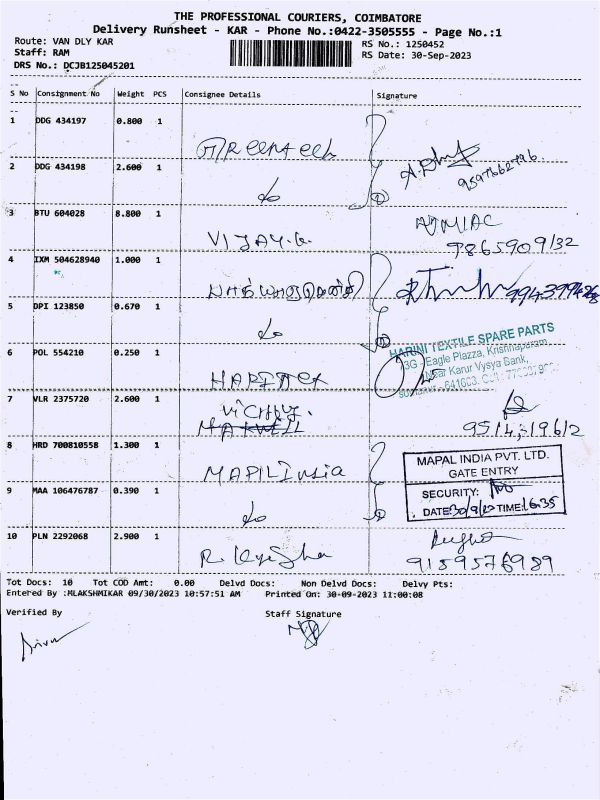 THE PROFESSIONAL COURIERS, COIMBATORE
Delivery Runsheet - KAR - Phone No.:0422-3505555 - Page No.:1
Route: VAN DLY KAR
Staff: RAM
DRS No.: DCJB125045201
RS No.: 1250452
RS Date: 30-Sep-2023
S No Consignment No Weight PCS Consignee Details Signature
1 DDG 434197 0.800 1
Greentech
2 DDG 434198 2.600 1
9597662796
do
3 BTU 604028 8.800 1
VIJAY.K
9865909132
4 IXM 504628940 1.000 1
5 DPI 123850 0.670 1
do
HARINI TEXTILE SPARE PARTS
Eagle Plazza, Krishnapuram,
Near Karur Vysya Bank,
6 POL 554210 0.250 1
7 VLR 2375720 2.600 1
8 HRD 700810558 1.300 1
MAPAL INDIA PVT. LTD.
GATE ENTRY
MAPIL India
SECURITY:
DATE: 30/9/23 TIME: 16.35
9 MAA 106476787 0.390 1
do
10 PLN 2292068 2.900 1
9159576989
Tot Docs: 10 Tot COD Amt: 0.00 Delvd Docs: Non Delvd Docs: Delvy Pts:
Entered By :MLAKSHMIKAR 09/30/2023 10:57:51 AM Printed On: 30-09-2023 11:00:08
Verified By Staff Signature